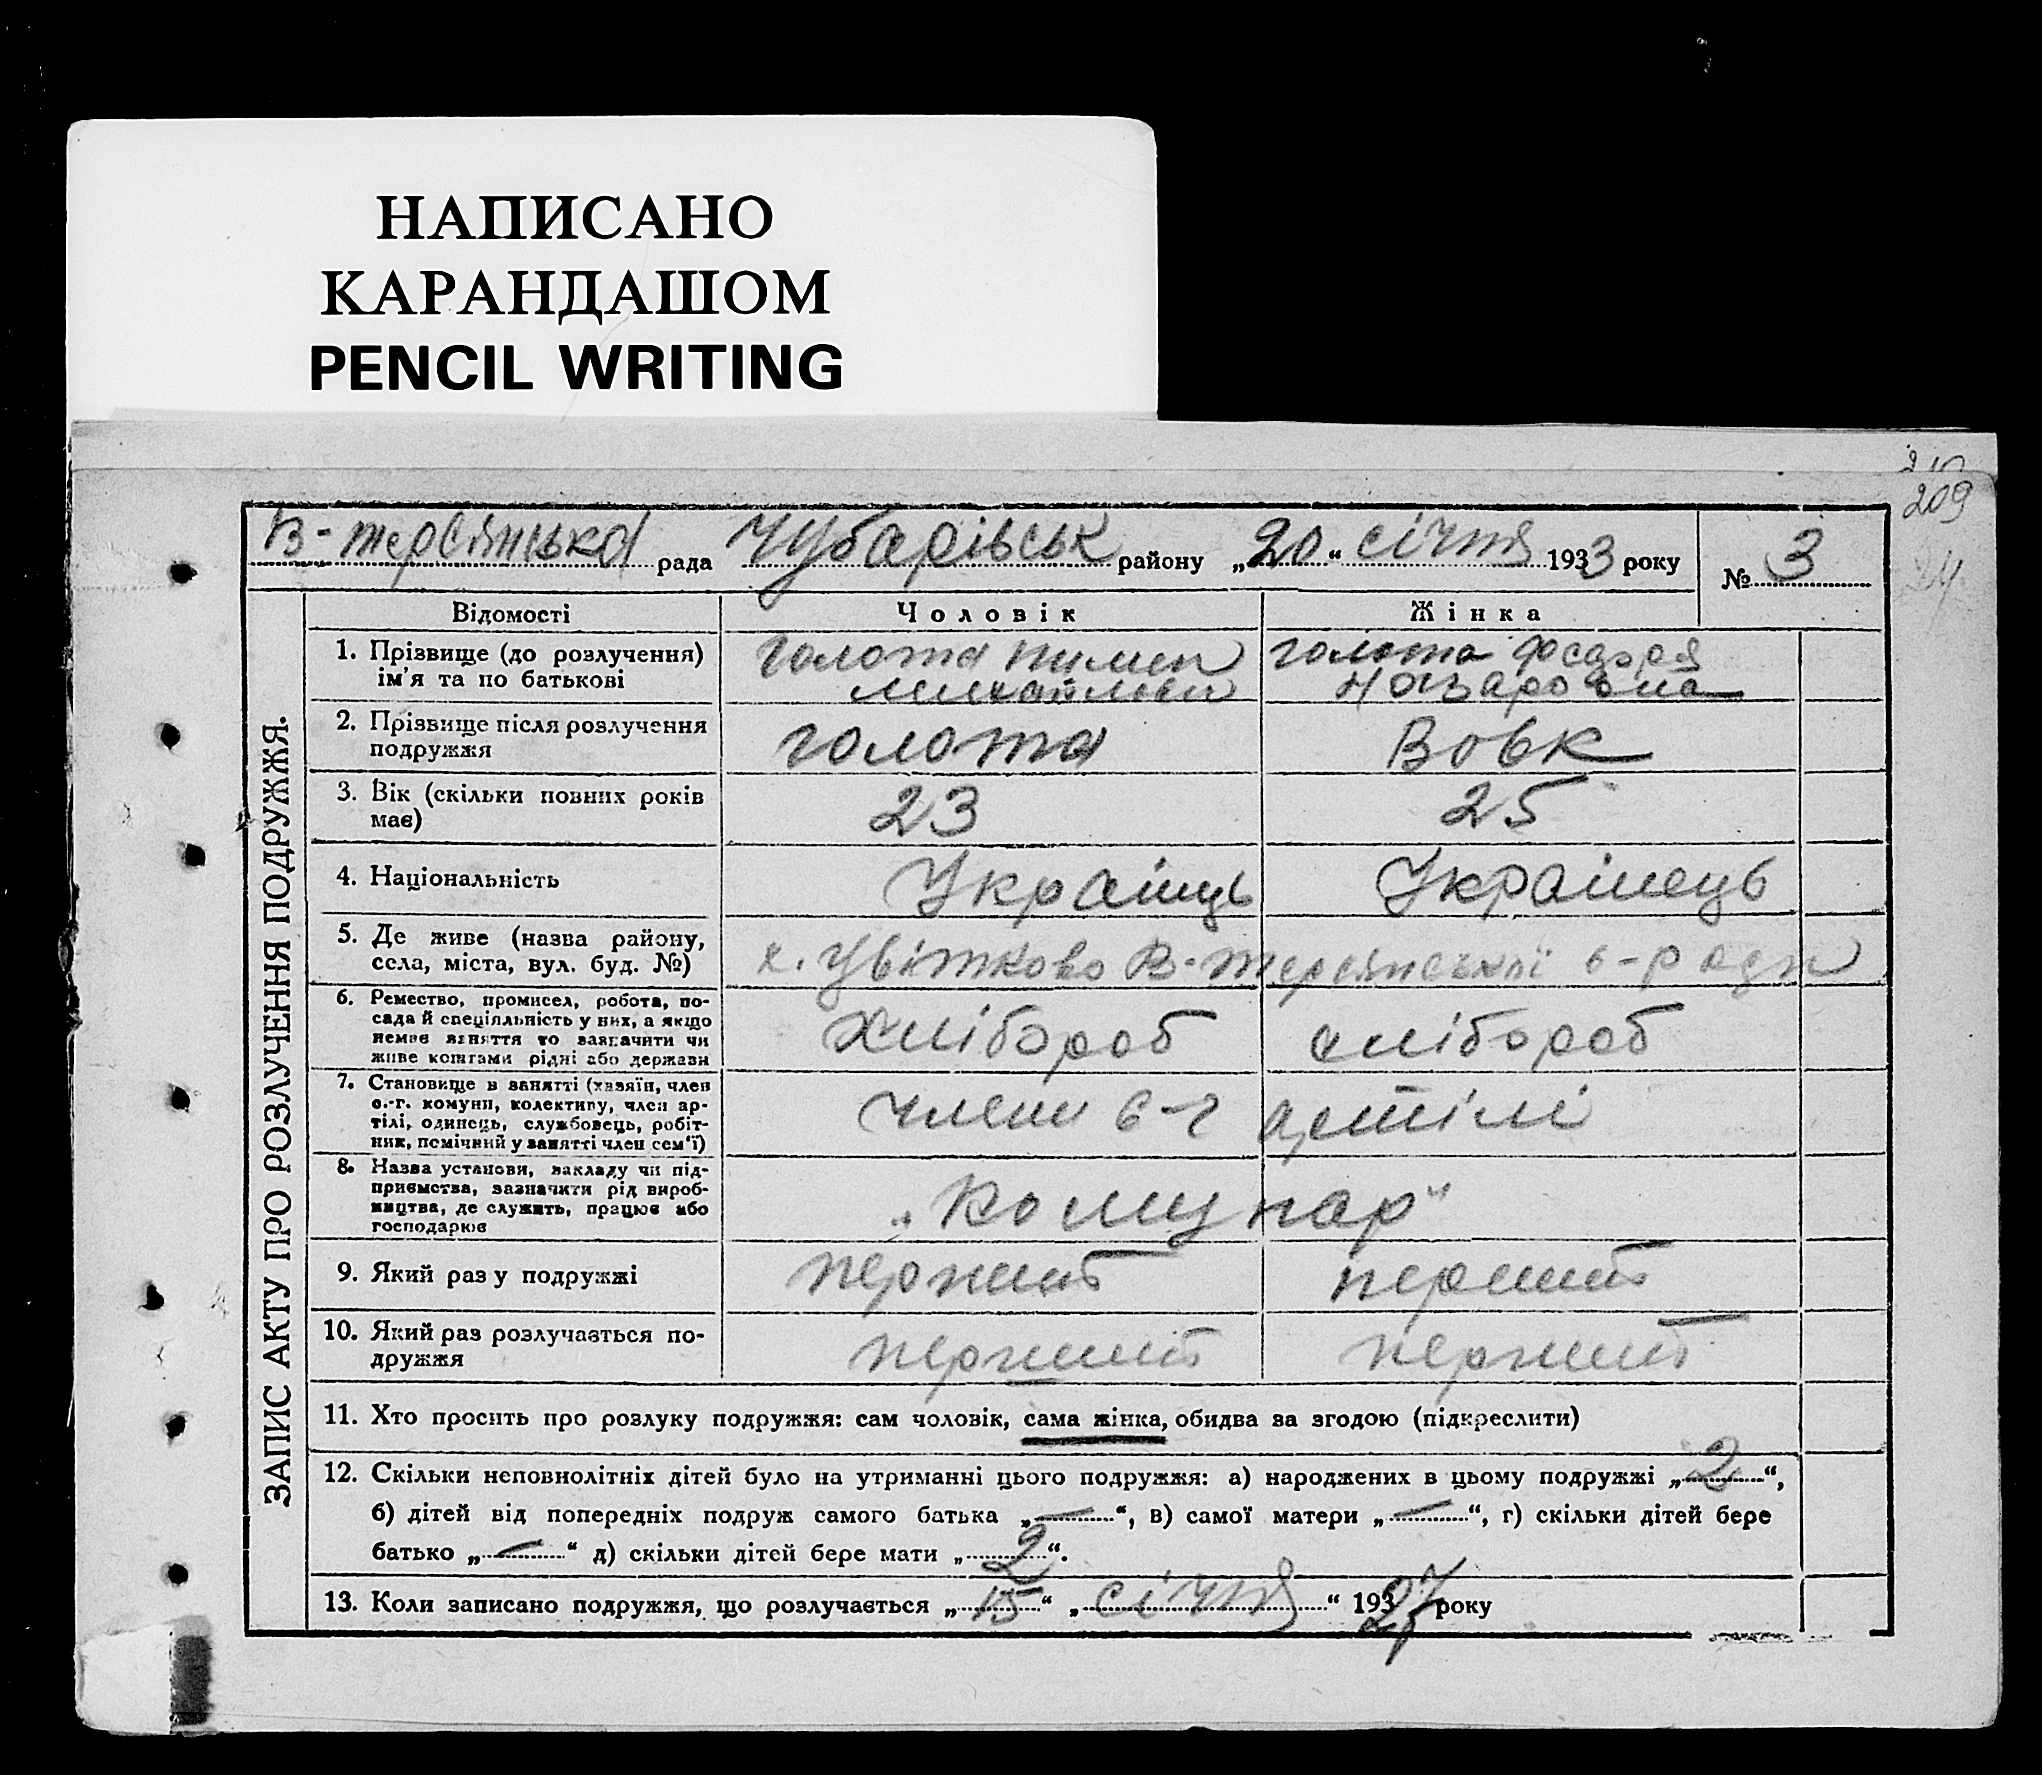 НАПИСАНО
КАРАНДАШОМ
PENCIL WRITING
209
В-терсянська рада Чубарівськ району „20“ січня 1933 року № 3
ЗАПИС АКТУ ПРО РОЗЛУЧЕННЯ ПОДРУЖЖЯ.
Відомості Чоловік Жінка
1. Прізвище (до розлучення) голота пимен голота Федора
ім'я та по батькові михайлович Назаровна
2. Прізвище після розлучення голота Вовк
подружжя
3. Вік (скільки повних років 23 25
має)
4. Національність Украінць Украінець
5. Де живе (назва району, х. Цвітково В-терсянської с-ради
села, міста, вул. буд. №)
6. Ремество, промисел, робота, по-
сада й спеціяльність у них, а якщо Хлібороб хлібороб
немає заняття то зазначити чи
живе коштами рідні або держави
7. Становище в занятті (хазяїн, член
с.-г. комуни, колективу, член ар- члени с-г артілі
тілі, одинець, службовець, робіт-
ник, помічний у занятті член сем'ї)
8. Назва установи, закладу чи під-
приємства, зазначити рід вироб- „Комунар“
ництва, де служить, працює або
господарює
9. Який раз у подружжі перший перший
10. Який раз розлучається по- перший перший
дружжя
11. Хто просить про розлуку подружжя: сам чоловік, сама жінка, обидва за згодою (підкреслити)
12. Скільки неповнолітніх дітей було на утриманні цього подружжя: а) народжених в цьому подружжі „2“,
б) дітей від попередніх подруж самого батька „—“, в) самої матери „—“, г) скільки дітей бере
батько „—“ д) скільки дітей бере мати „2“.
13. Коли записано подружжя, що розлучається „15“ „січня“ 193 року